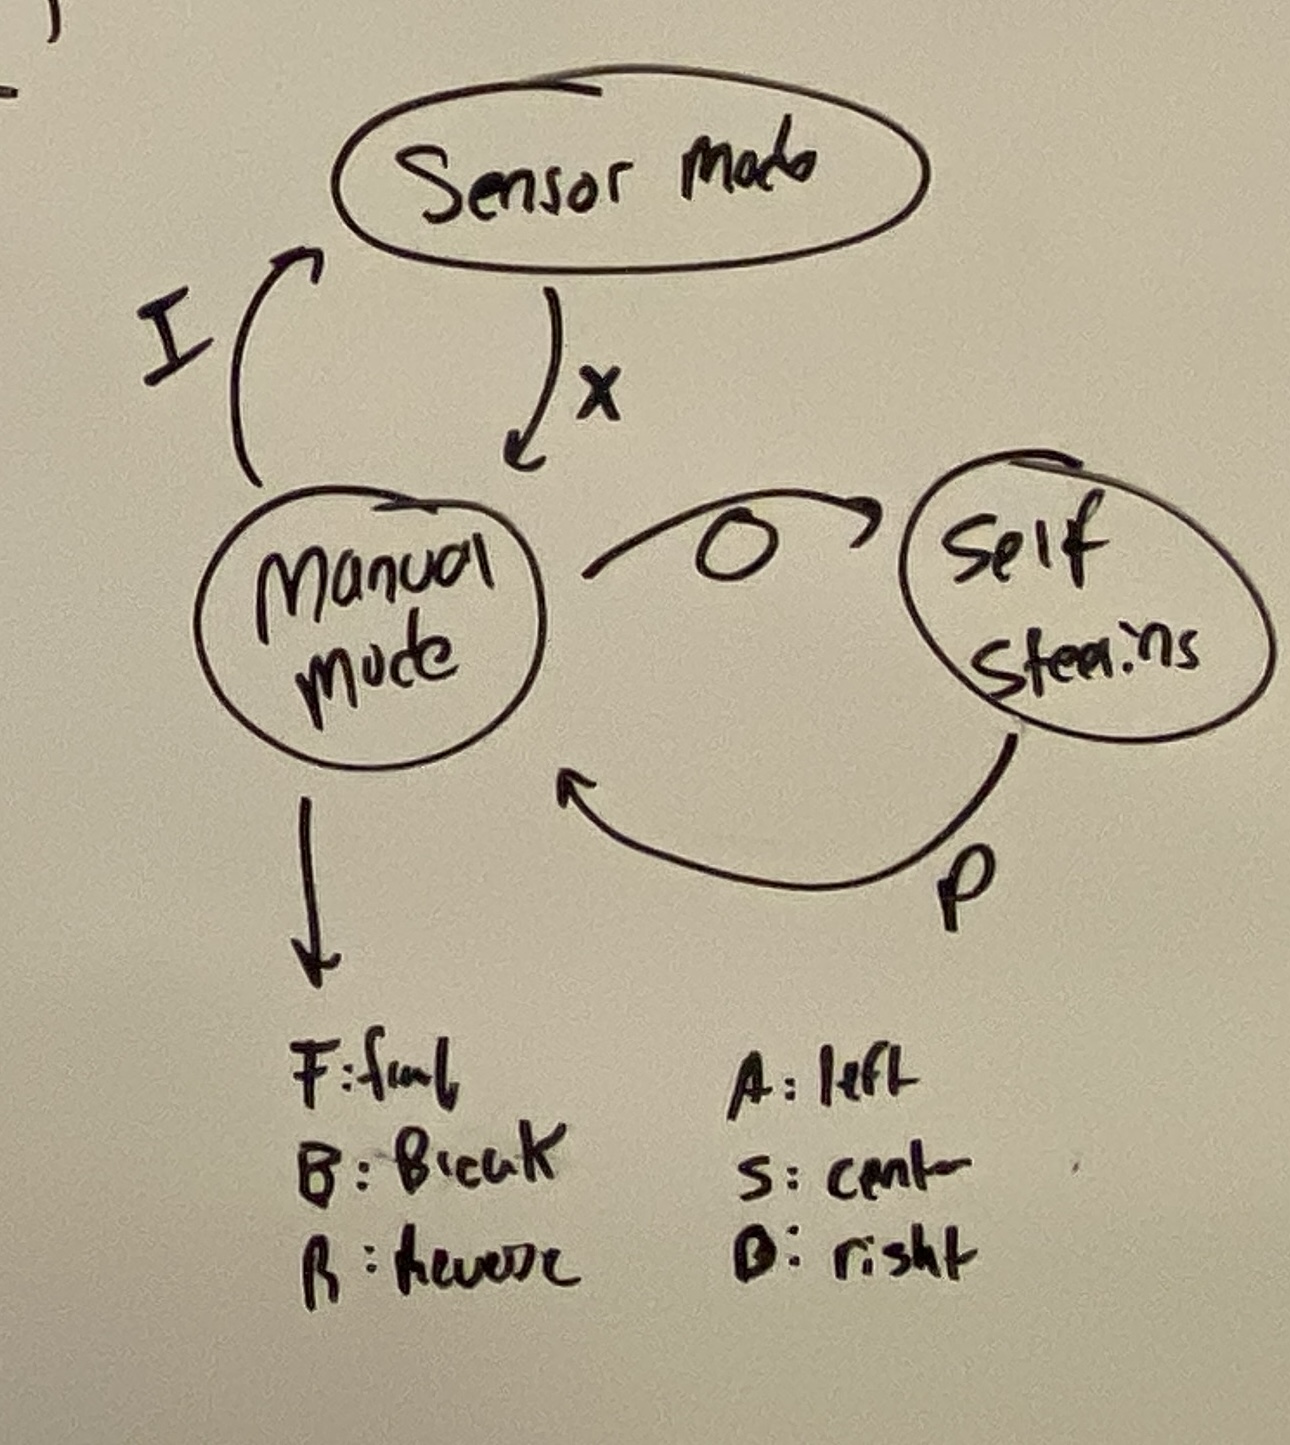 Sensor mode
I
X
Manual
mode
O
Self
Steering
P
F:
B: Break
R: Reverse
A: left
S: center
D: right